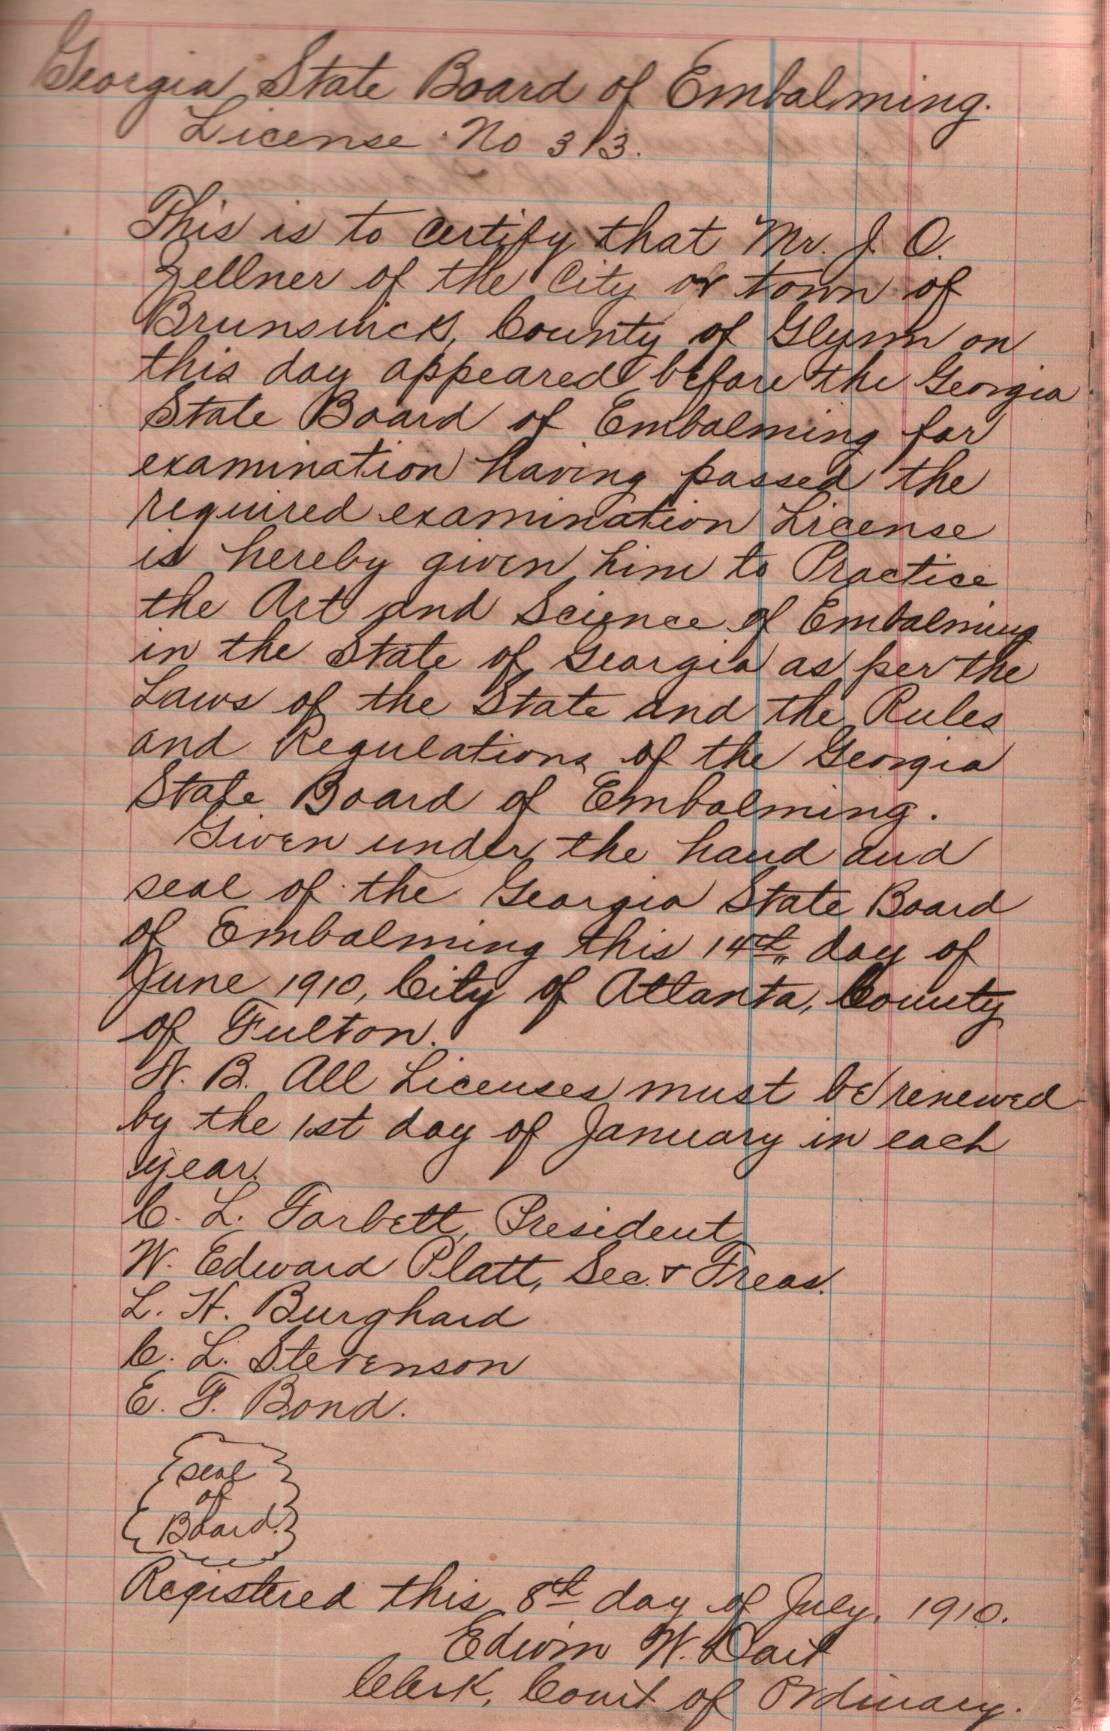 Georgia State Board of Embalming.
License No 313.
This is to certify that Mr. J. O.
Zellner of the City or town of
Brunswick, County of Glynn on
this day appeared before the Georgia
State Board of Embalming for
examination having passed the
required examination License
is hereby given him to Practice
the Art and Science of Embalming
in the State of Georgia as per the
Laws of the State and the Rules
and Regulations of the Georgia
State Board of Embalming.
Given under the hand and
seal of the Georgia State Board
of Embalming this 14th day of
June 1910, City of Atlanta, County
of Fulton.
N. B. All Licenses must be renewed
by the 1st day of January in each
year.
C. L. Torbett, President
W. Edward Platt, Sec. & Treas.
L. H. Burghard
C. L. Stevenson
E. F. Bond.
Seal
of
Board.
Registered this 8th day of July, 1910.
Edwin W. Dart
Clerk, Court of Ordinary.